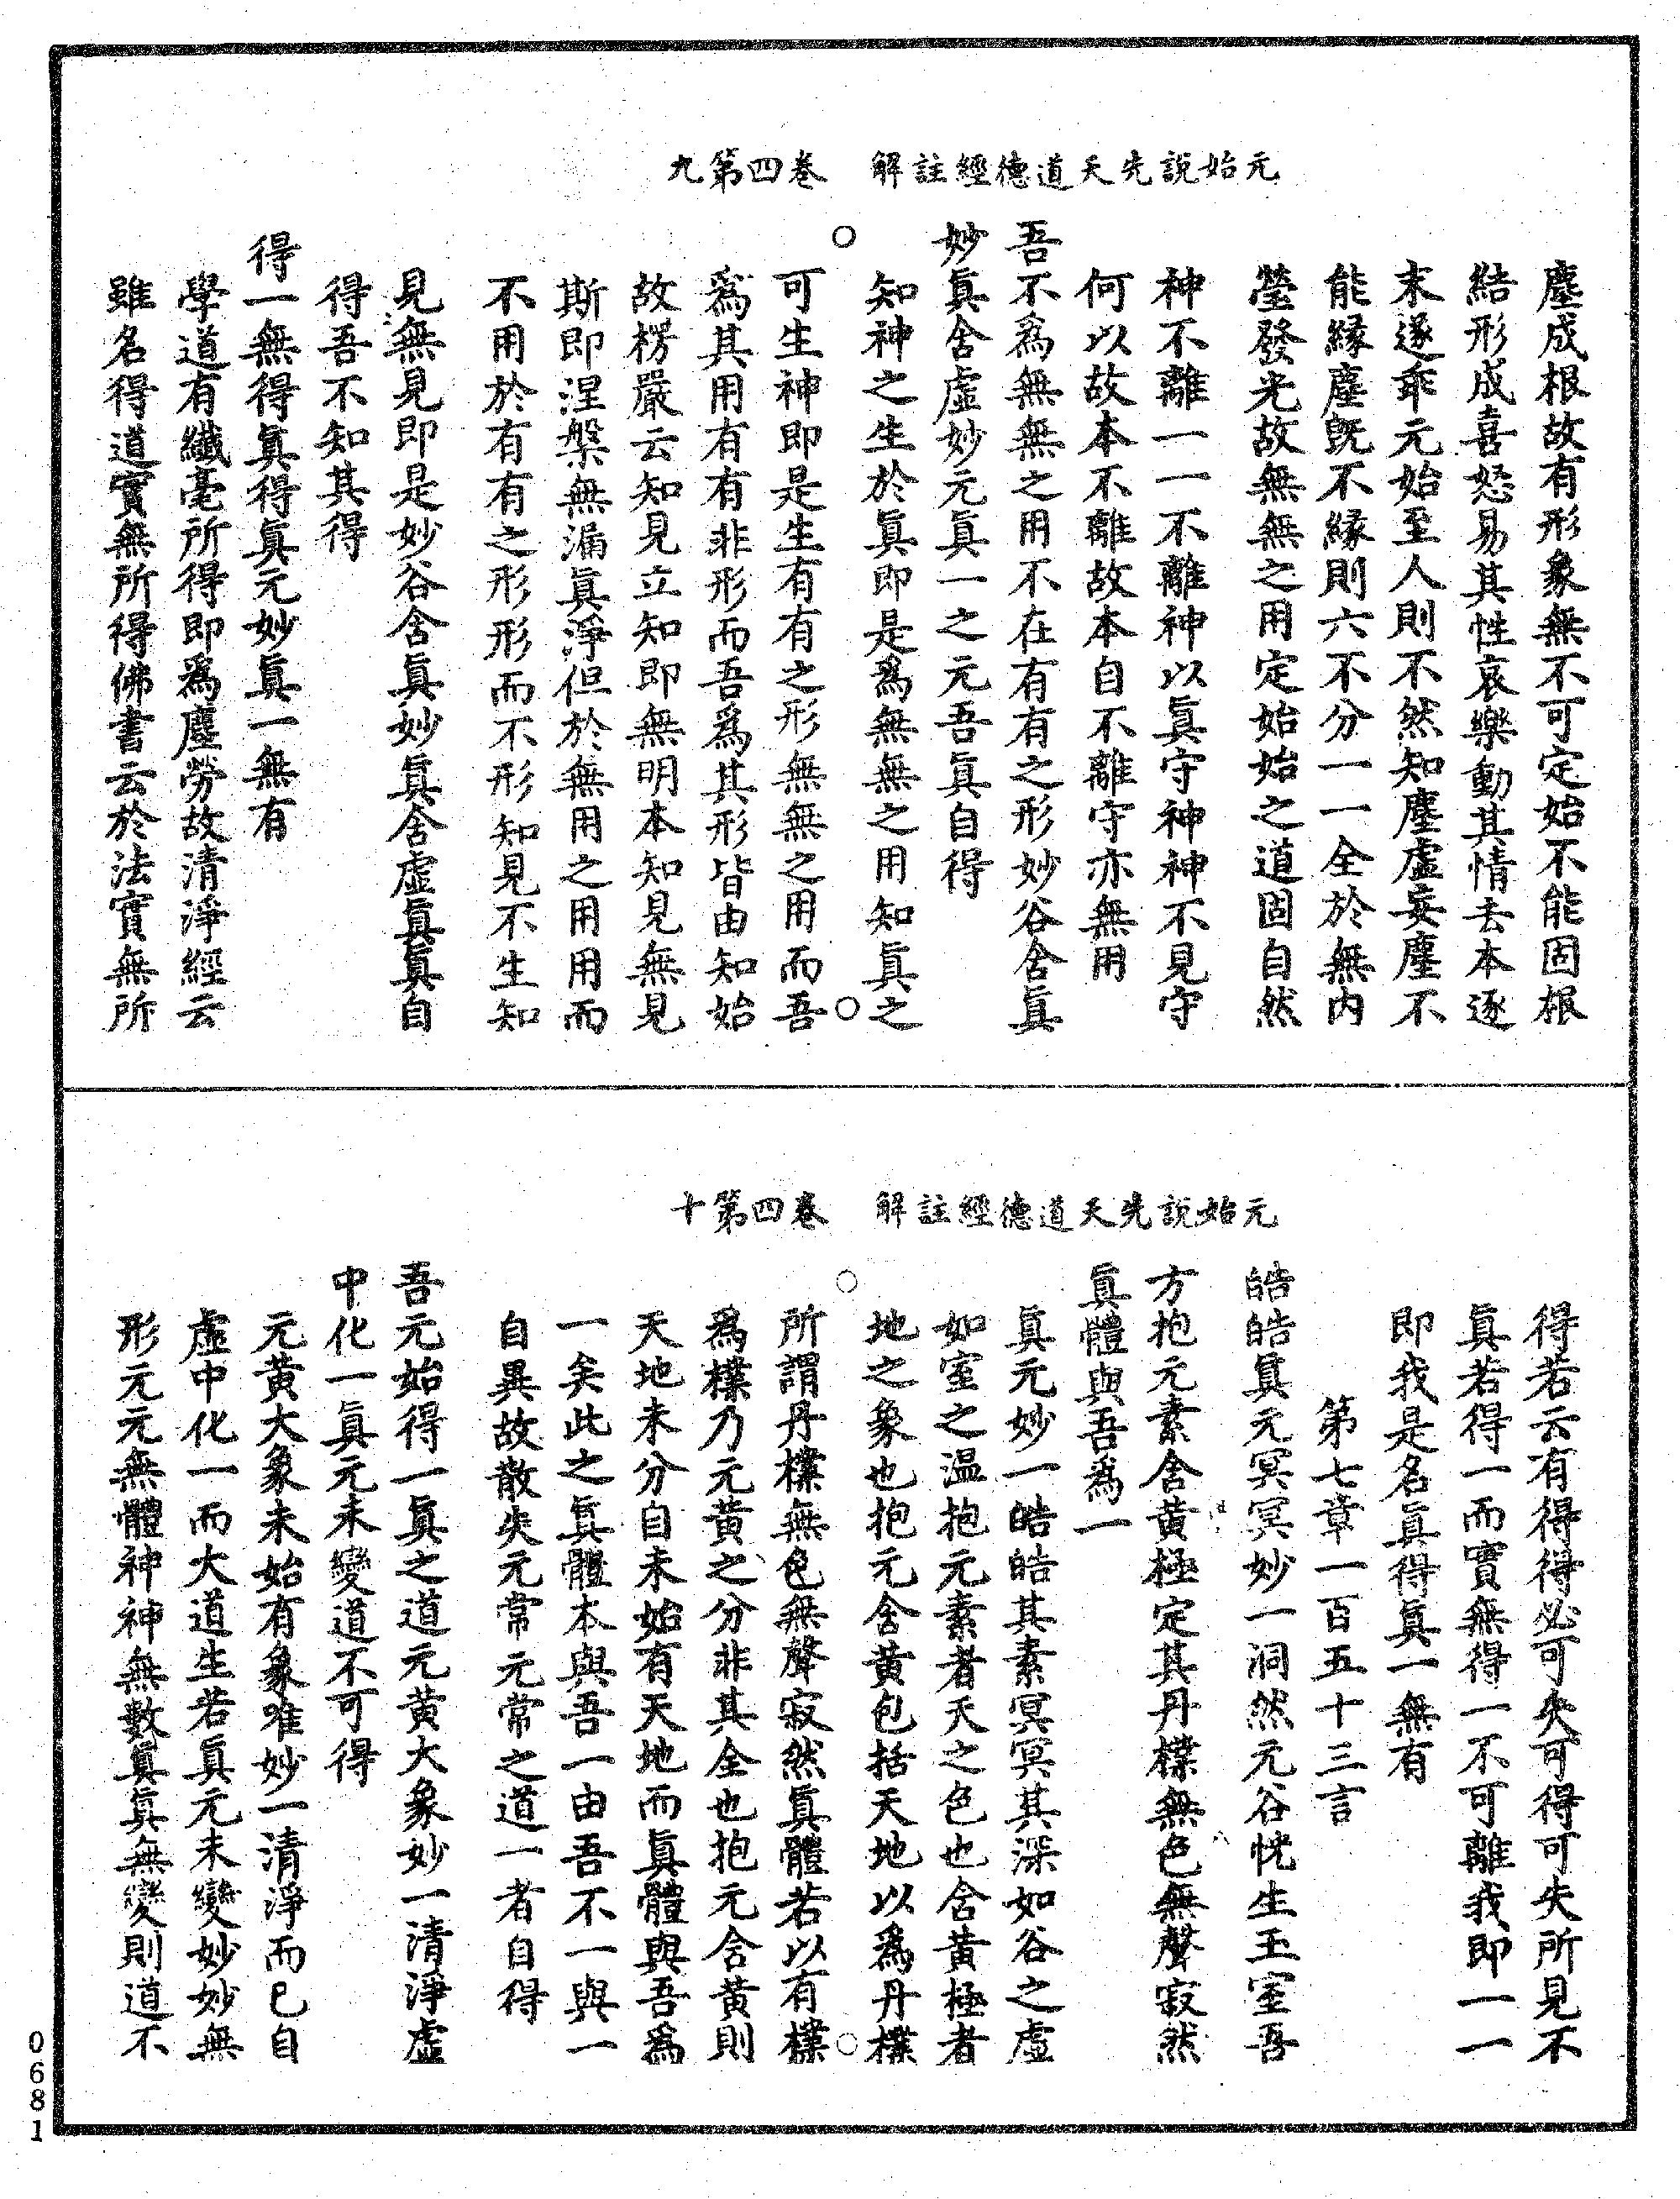 元始說先天道德經註解　卷四第九
塵成根故有形象無不可定始不能固根
結形成喜怒易其性哀樂動其情去本逐
末遂乖元始至人則不然知塵虛妄塵不
能緣塵旣不緣則六不分一一全於無內
瑩發光故無無之用定始始之道固自然
神不離一一不離神以眞守神神不見守
何以故本不離故本自不離守亦無用
吾不爲無無之用不在有有之形妙谷含眞
妙眞含虛妙元眞一之元吾眞自得
知神之生於眞卽是爲無無之用知眞之
可生神卽是生有有之形無無之用而吾
爲其用有有非形而吾爲其形皆由知始
故楞嚴云知見立知卽無明本知見無見
斯卽涅槃無漏眞淨但於無用之用用而
不用於有有之形形而不形知見不生知
見無見卽是妙谷含眞妙眞含虛眞眞自
得吾不知其得
得一無得眞得眞元妙眞一無有
學道有纖毫所得卽爲塵勞故清淨經云
雖名得道實無所得佛書云於法實無所
元始說先天道德經註解　卷四第十
得若云有得得必可失可得可失所見不
眞若得一而實無得一不可離我卽一一
卽我是名眞得眞一無有
第七章一百五十三言
皓皓眞元冥冥妙一洞然元谷恍生玉室吾
方抱元素含黃極定其丹樸無色無聲寂然
眞體與吾爲一
眞元妙一皓皓其素冥冥其深如谷之虛
如室之温抱元素者天之色也含黃極者
地之象也抱元含黃包括天地以爲丹樸
所謂丹樸無色無聲寂然眞體若以有樸
爲樸乃元黃之分非其全也抱元含黃則
天地未分自未始有天地而眞體與吾爲
一矣此之眞體本與吾一由吾不一與一
自異故散失元常元常之道一者自得
吾元始得一眞之道元黃大象妙一清淨虛
中化一眞元未變道不可得
元黃大象未始有象唯妙一清淨而已自
虛中化一而大道生若眞元未變妙妙無
形元元無體神神無數眞眞無變則道不
0681